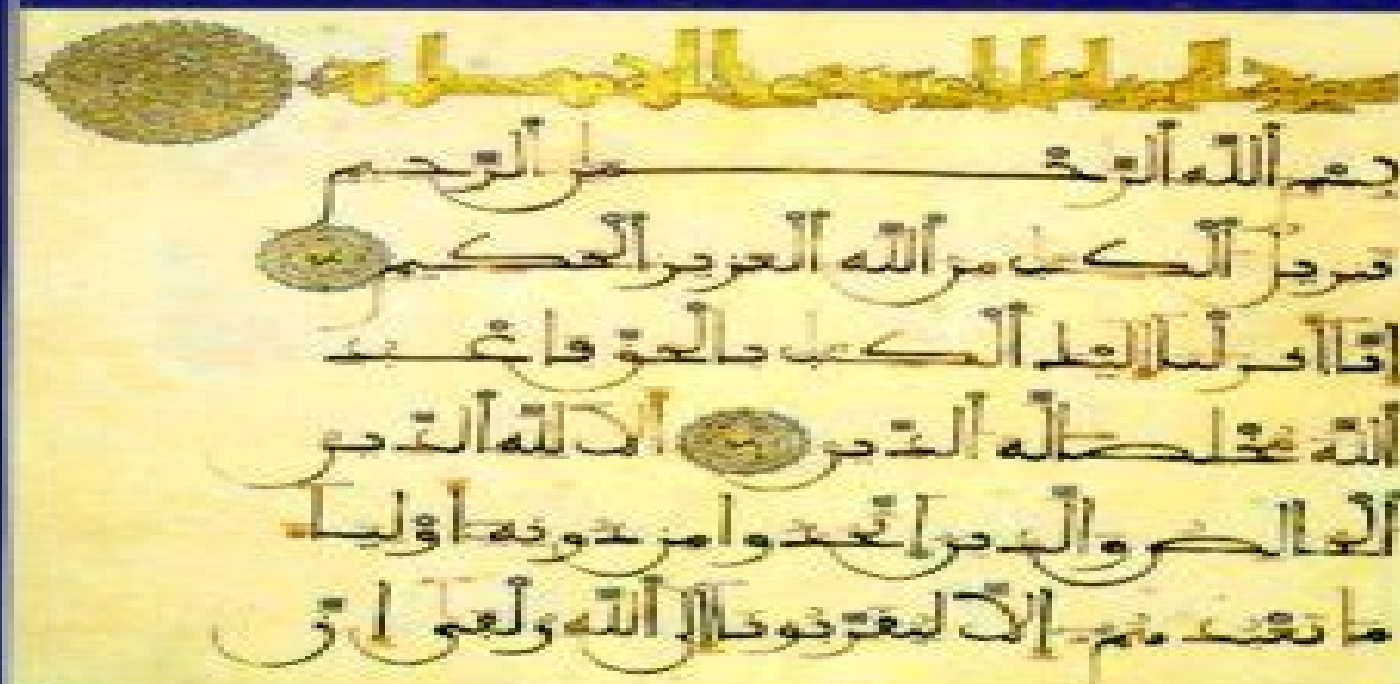 بِسْمِ اَللَّهِ اَلرَّحْمٰنِ اَلرَّحِيمِ
تنزيل اَلْكتٰب من اَللَّه اَلْعزيز اَلْحكيم
إنّا أنزلنا إليْك اَلْكتٰب بالْحقّ فاعْبد
اَللَّه مخْلصا لّه اَلدّين ألا للّه اَلدّين
اَلْخالص واَلّذين اَتّخذوا من دونه أوْلياء
ما نعْبدهم إلّا ليقرّبونا إلى اَللَّه زلْفى إنّ